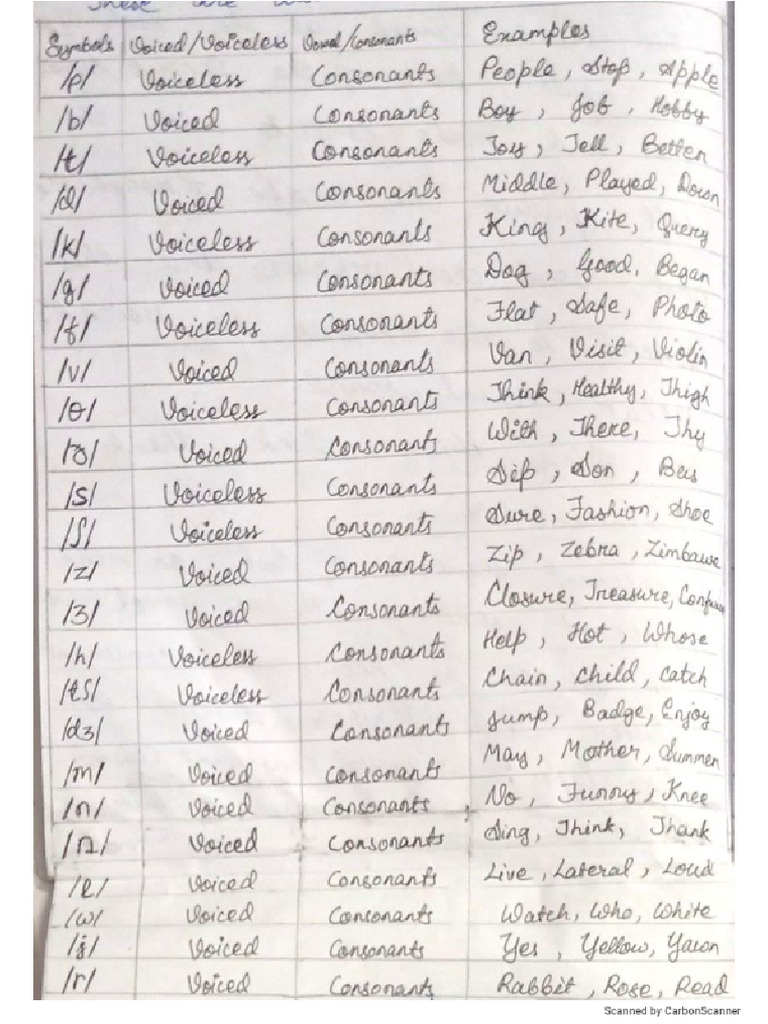 These are
Symbols Voiced/Voiceless Vowel/Consonants Examples
/p/ Voiceless Consonants People, Stop, Apple
/b/ Voiced Consonants Boy, Job, Hobby
/t/ Voiceless Consonants Toy, Tell, Better
/d/ Voiced Consonants Middle, Played, Down
/k/ Voiceless Consonants King, Kite, Query
/g/ Voiced Consonants Dog, Good, Began
/f/ Voiceless Consonants Flat, Safe, Photo
/v/ Voiced Consonants Van, Visit, Violin
/θ/ Voiceless Consonants Think, Healthy, Thigh
/ð/ Voiced Consonants With, There, Thy
/s/ Voiceless Consonants Sip, Son, Bus
/ʃ/ Voiceless Consonants Sure, Fashion, Shoe
/z/ Voiced Consonants Zip, Zebra, Zimbawe
/ʒ/ Voiced Consonants Closure, Treasure,
/h/ Voiceless Consonants Help, Hot, Whose
/tʃ/ Voiceless Consonants Chain, Child, Catch
/dʒ/ Voiced Consonants Jump, Badge, Enjoy
/m/ Voiced Consonants May, Mother, Summer
/n/ Voiced Consonants No, Funny, Knee
/ŋ/ Voiced Consonants Sing, Think, Thank
/l/ Voiced Consonants Live, Lateral, Loud
/w/ Voiced Consonants Watch, Who, White
/j/ Voiced Consonants Yes, Yellow,
/r/ Voiced Consonants Rabbit, Rose, Read
Scanned by CarbonScanner